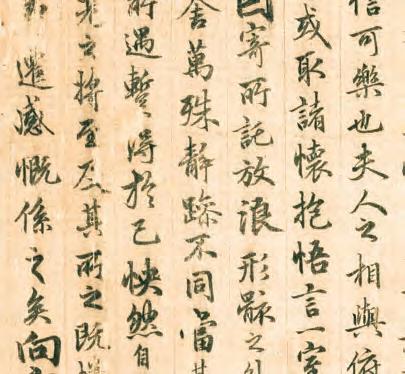 信可樂也夫人之相與俯
或取諸懷抱悟言一室
因寄所託放浪形骸之外
舍萬殊靜躁不同當其
所遇蹔得於己怏然自
老之將至及其所之既惓
事遷感慨係之矣向之